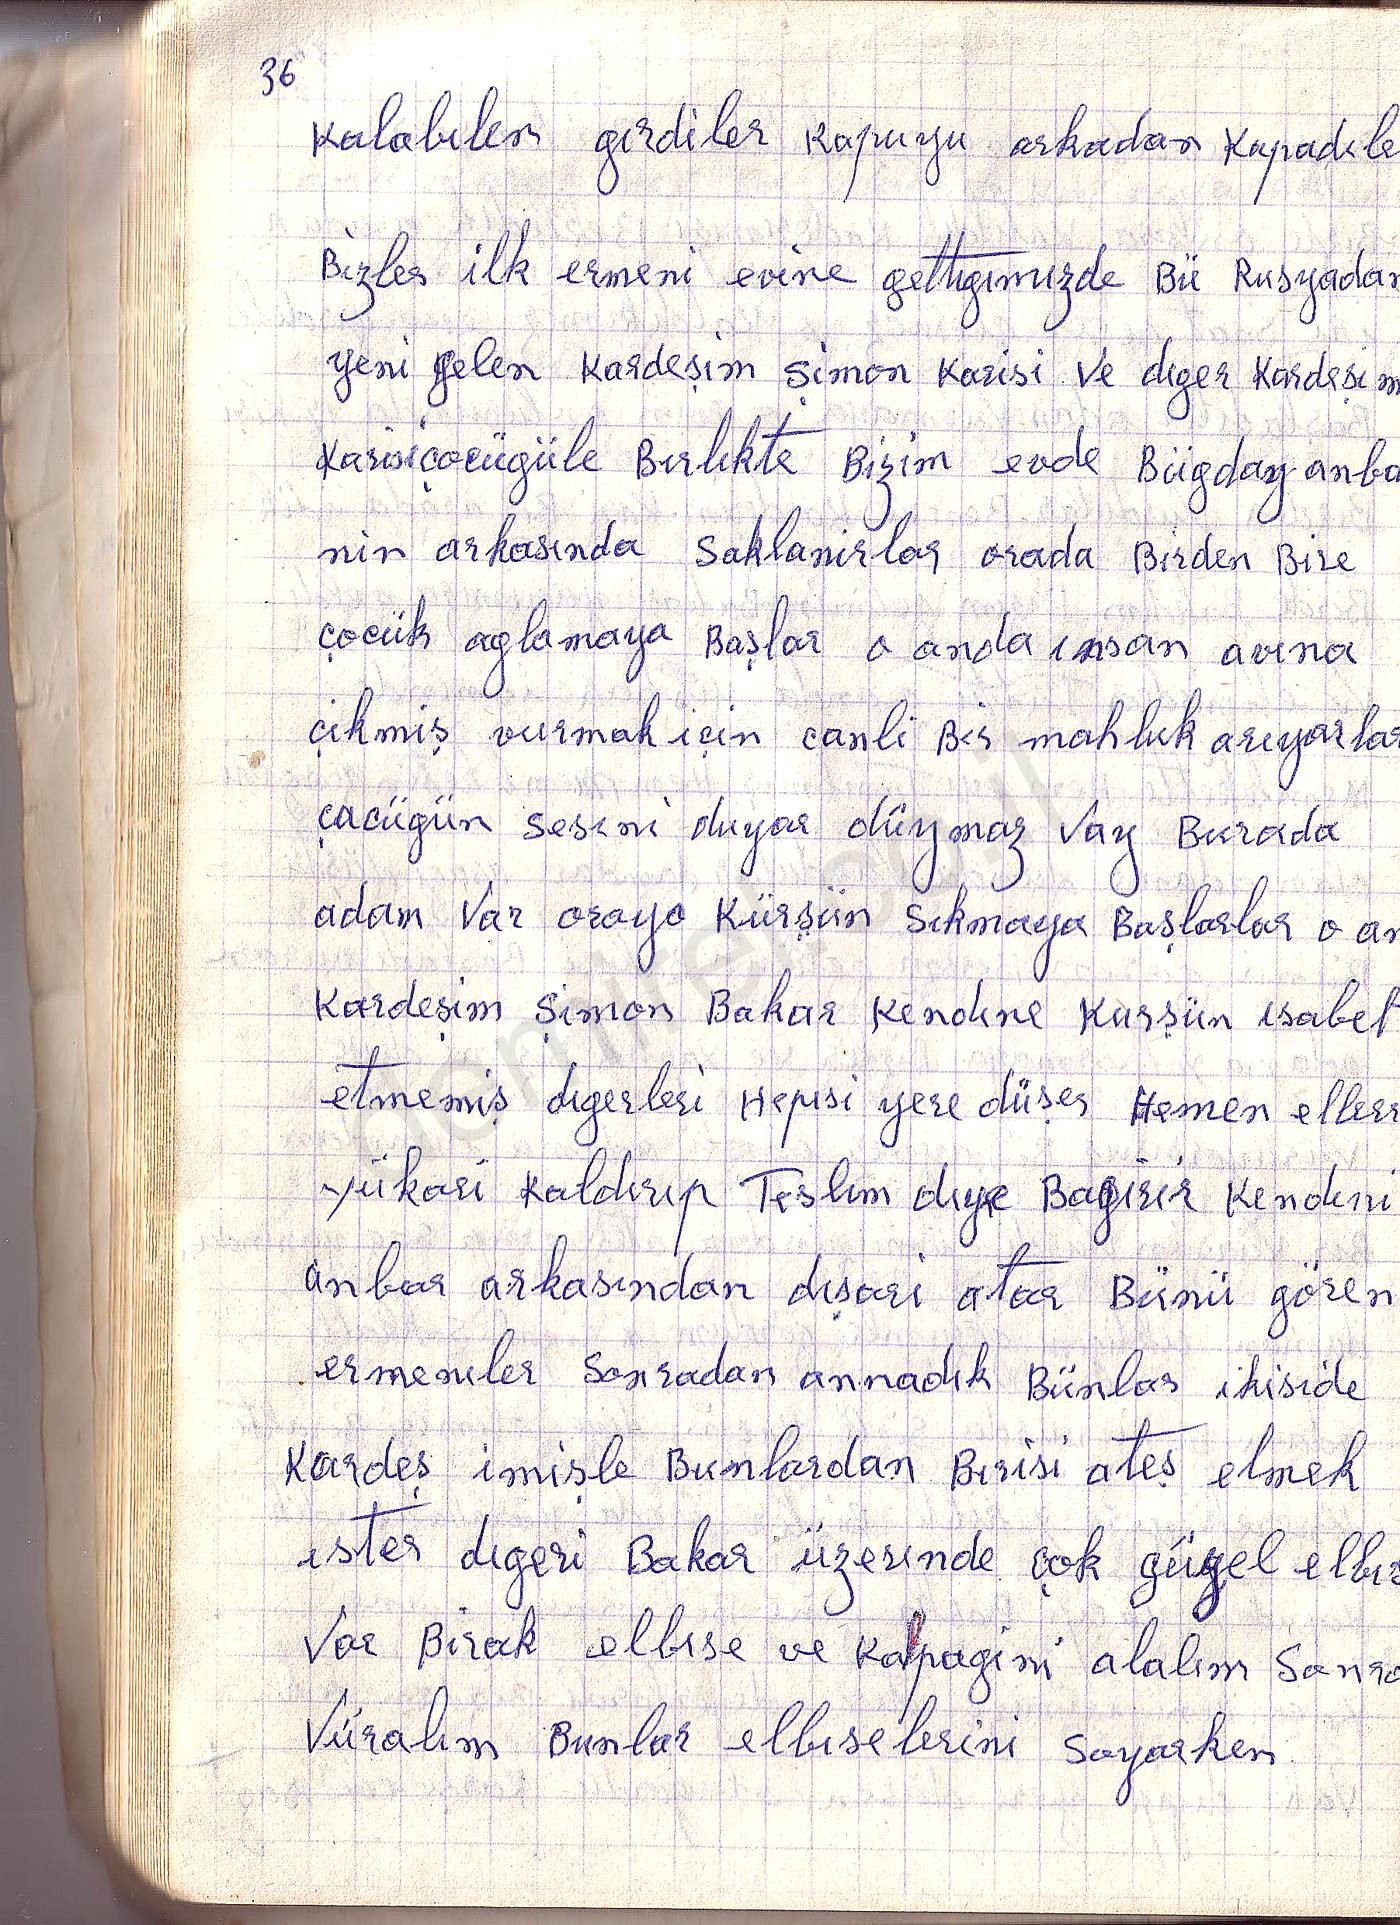 36
Kalabılen girdiler Kapuyu arkadan Kapadıle
Bizler ilk ermeni evine gettıgımızde Bü Rusyadan
yeni gelen Kardeşim Şimon Karisi ve dıger Kardeşim
Karisi çocügüle Bırlıkte Bizim evde Bügday anba
nin arkasında Saklanirlar orada Birden Bire
çocük aglamaya Başlar o anda ınsan avına
çikmiş vurmak için canli Bir mahluk arıyarlar
çacügün sesıni duyar düymaz Vay Burada
adam Var oraya Kürşün Sıkmaya Başlarlar o an
Kardeşim Şimon Bakar Kendıne Kurşün ısabet
etmemiş dıgerleri Hepısi yere düşer Hemen eller
yükari Kaldırıp Teslım dıye Bagirir Kendıni
anbar arkasından dışari atar Bünü gören
ermenıler Sonradan annadık Bünlar ikiside
Kardeş imişle Bunlardan Bırisi ateş etmek
ıster dıgeri Bakar üzerınde çok güzel elbı
Var Birak elbıse ve Kalpagini alalım Sonra
Vüralım Bunlar elbıselerini Soyarken
demirel.co.il